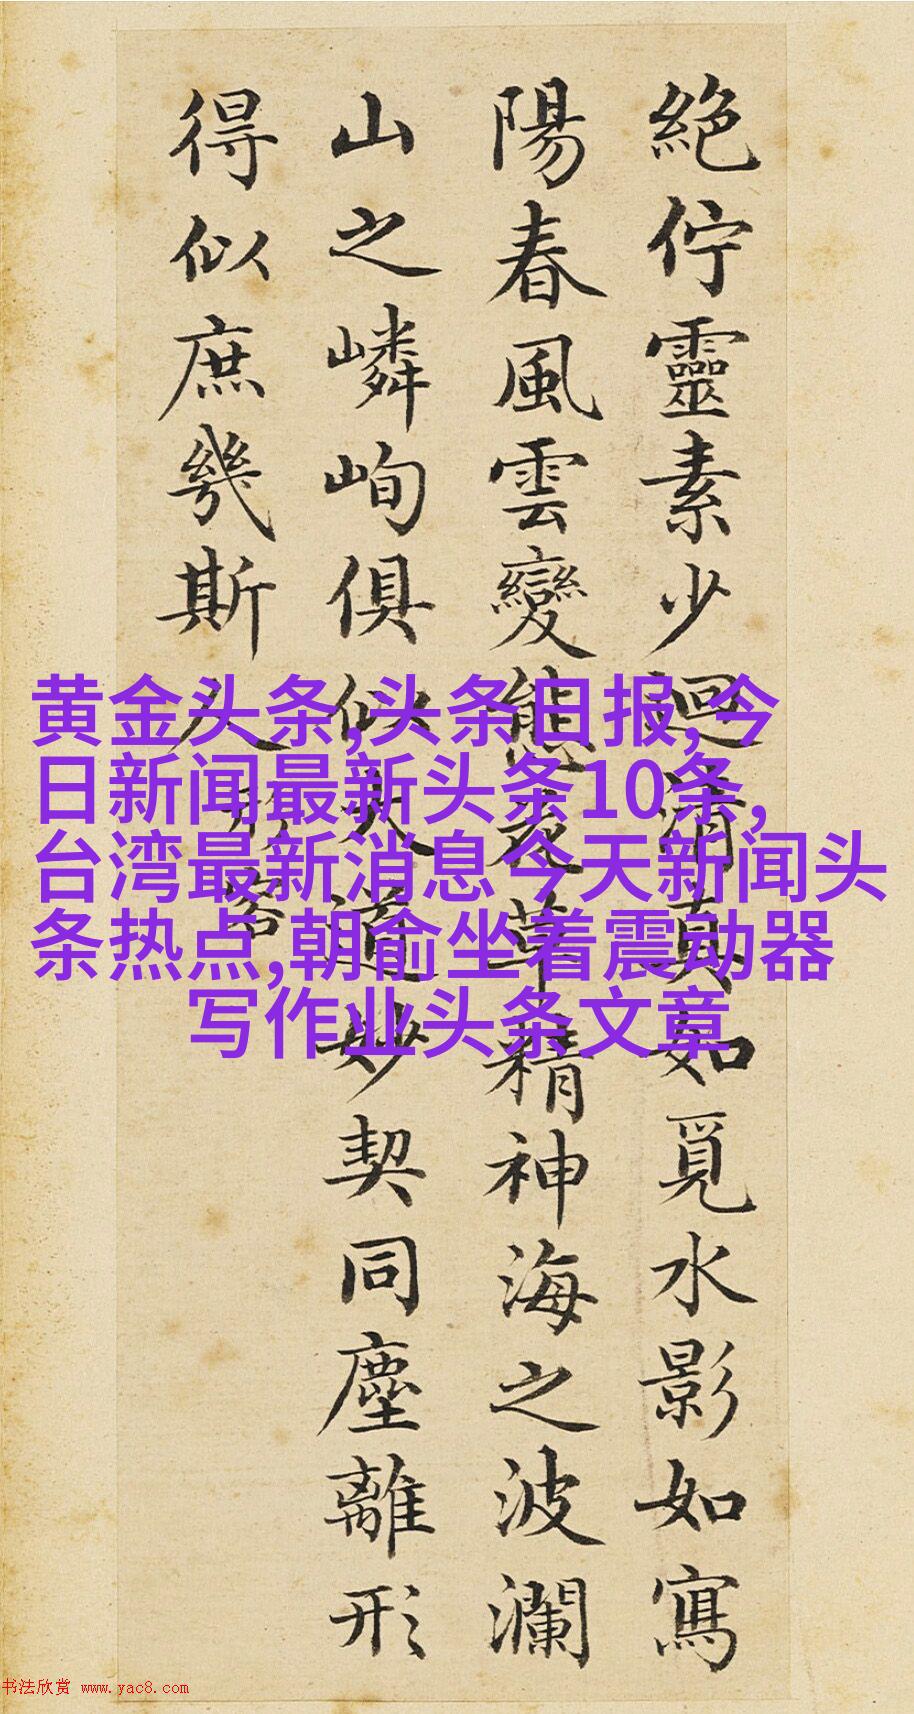 絕佇靈素少迴清真如覓水影如寫
陽春風雲變態花草精神海之波瀾
山之嶙峋俱似大道妙契同塵離形
得似庶幾斯人
形容
黄金头条,头条日报,今
日新闻最新头条10条,
台湾最新消息今天新闻头
条热点,朝俞坐着震动器
写作业头条文章
书法欣赏 www.yac8.com